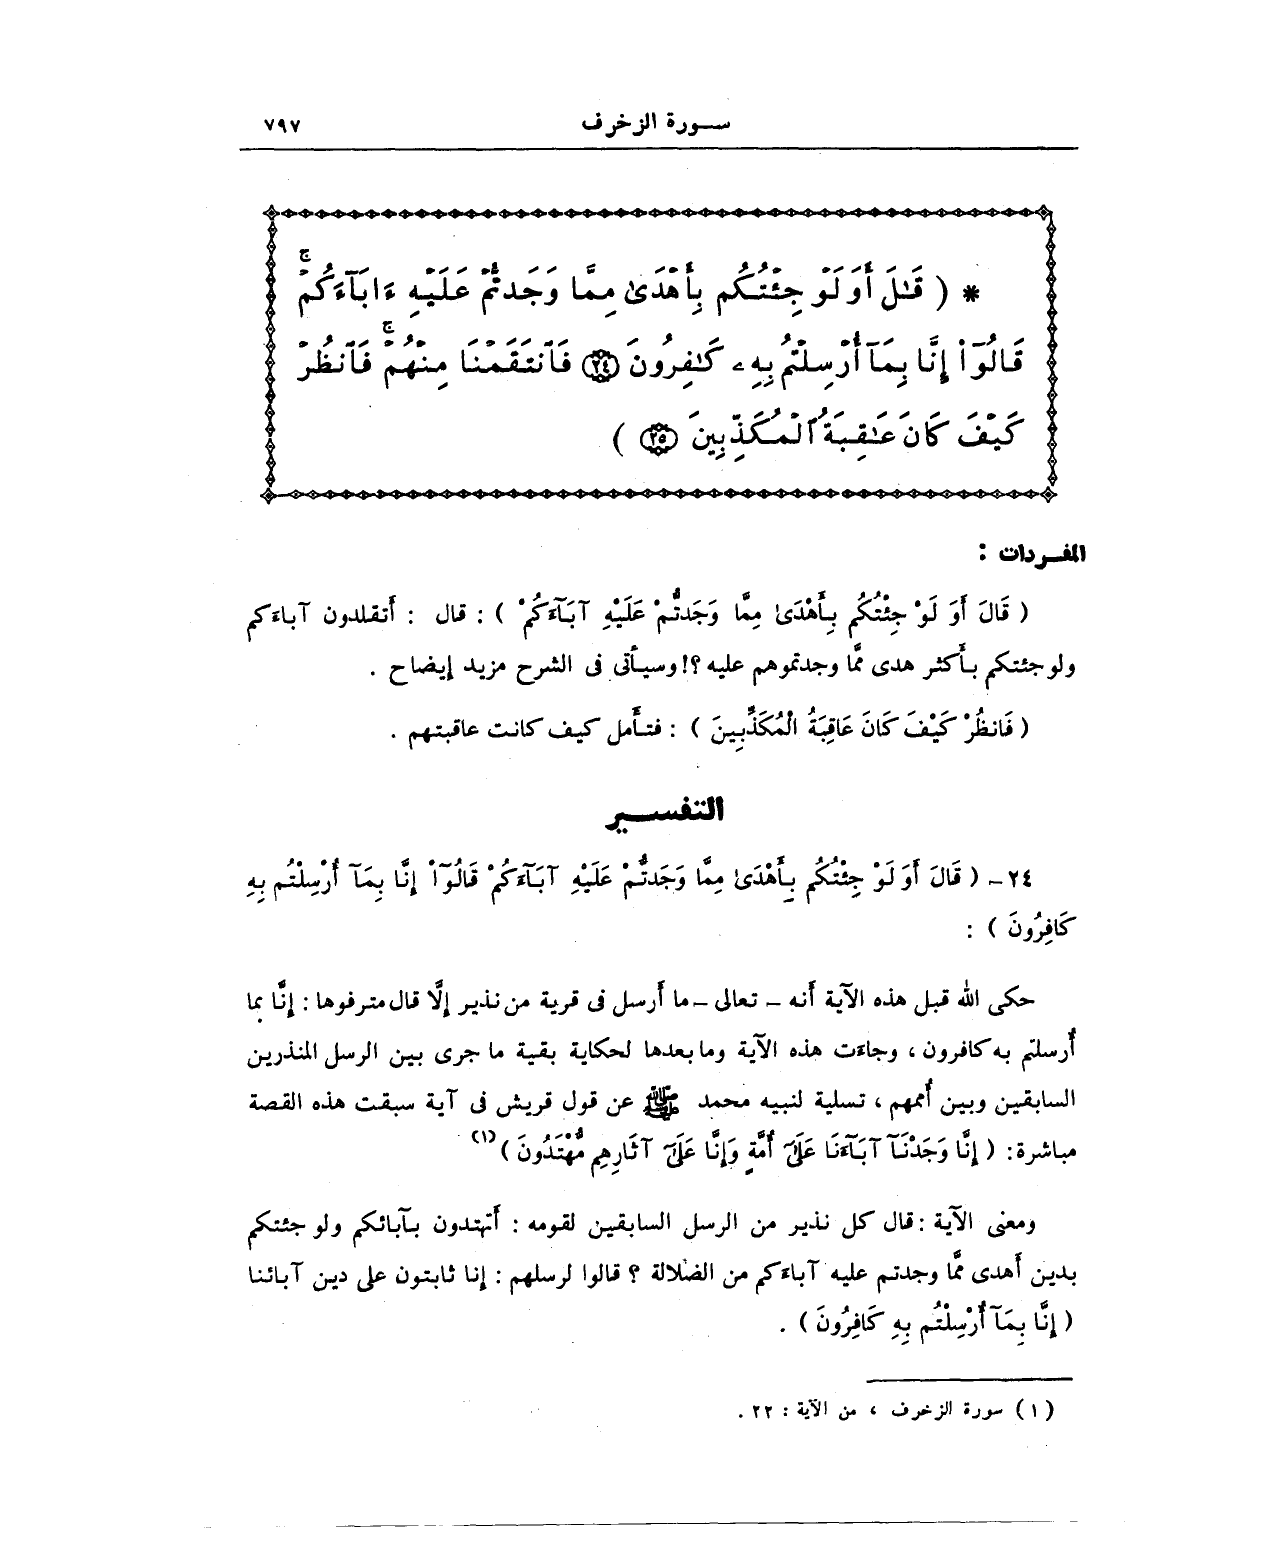 سورة الزخرف ٧٩٧
* ( قَٰلَ أَوَلَوْ جِئْتُكُم بِأَهْدَىٰ مِمَّا وَجَدتُّمْ عَلَيْهِ ءَابَآءَكُمْ ۖ
قَالُوٓا۟ إِنَّا بِمَآ أُرْسِلْتُم بِهِۦ كَٰفِرُونَ ﴿٢٤﴾ فَٱنتَقَمْنَا مِنْهُمْ ۖ فَٱنظُرْ
كَيْفَ كَانَ عَٰقِبَةُ ٱلْمُكَذِّبِينَ ﴿٢٥﴾ )
المفردات :
( قَالَ أَوَ لَوْ جِئْتُكُم بِأَهْدَىٰ مِمَّا وَجَدتُّمْ عَلَيْهِ آبَآءَكُمْ ) : قال : أتقلدون آباءكم
ولو جئتكم بأكثر هدى ممَّا وجدتموهم عليه ؟! وسيأتى فى الشرح مزيد إيضاح .
( فَانظُرْ كَيْفَ كَانَ عَاقِبَةُ الْمُكَذِّبِينَ ) : فتأمل كيف كانت عاقبتهم .
التفسير
٢٤ - ( قَالَ أَوَ لَوْ جِئْتُكُم بِأَهْدَىٰ مِمَّا وَجَدتُّمْ عَلَيْهِ آبَآءَكُمْ قَالُوٓاْ إِنَّا بِمَآ أُرْسِلْتُم بِهِ
كَافِرُونَ ) :
حكى الله قبل هذه الآية أنه - تعالى - ما أرسل فى قرية من نذير إلَّا قال مترفوها : إنَّا بما
أُرسلتم به كافرون ، وجاءت هذه الآية وما بعدها لحكاية بقية ما جرى بين الرسل المنذرين
السابقين وبين أُممهم ، تسلية لنبيه محمد ﷺ عن قول قريش فى آية سبقت هذه القصة
مباشرة : ( إِنَّا وَجَدْنَآ آبَآءَنَا عَلَىٰٓ أُمَّةٍ وَإِنَّا عَلَىٰٓ آثَارِهِم مُّهْتَدُونَ ) (١)
ومعنى الآية : قال كل نذير من الرسل السابقين لقومه : أتهتدون بآبائكم ولو جئتكم
بدين أهدى ممَّا وجدتم عليه آباءكم من الضلالة ؟ قالوا لرسلهم : إنا ثابتون على دين آبائنا
( إِنَّا بِمَآ أُرْسِلْتُم بِهِ كَافِرُونَ ) .
( ١ ) سورة الزخرف ، من الآية : ٢٢ .